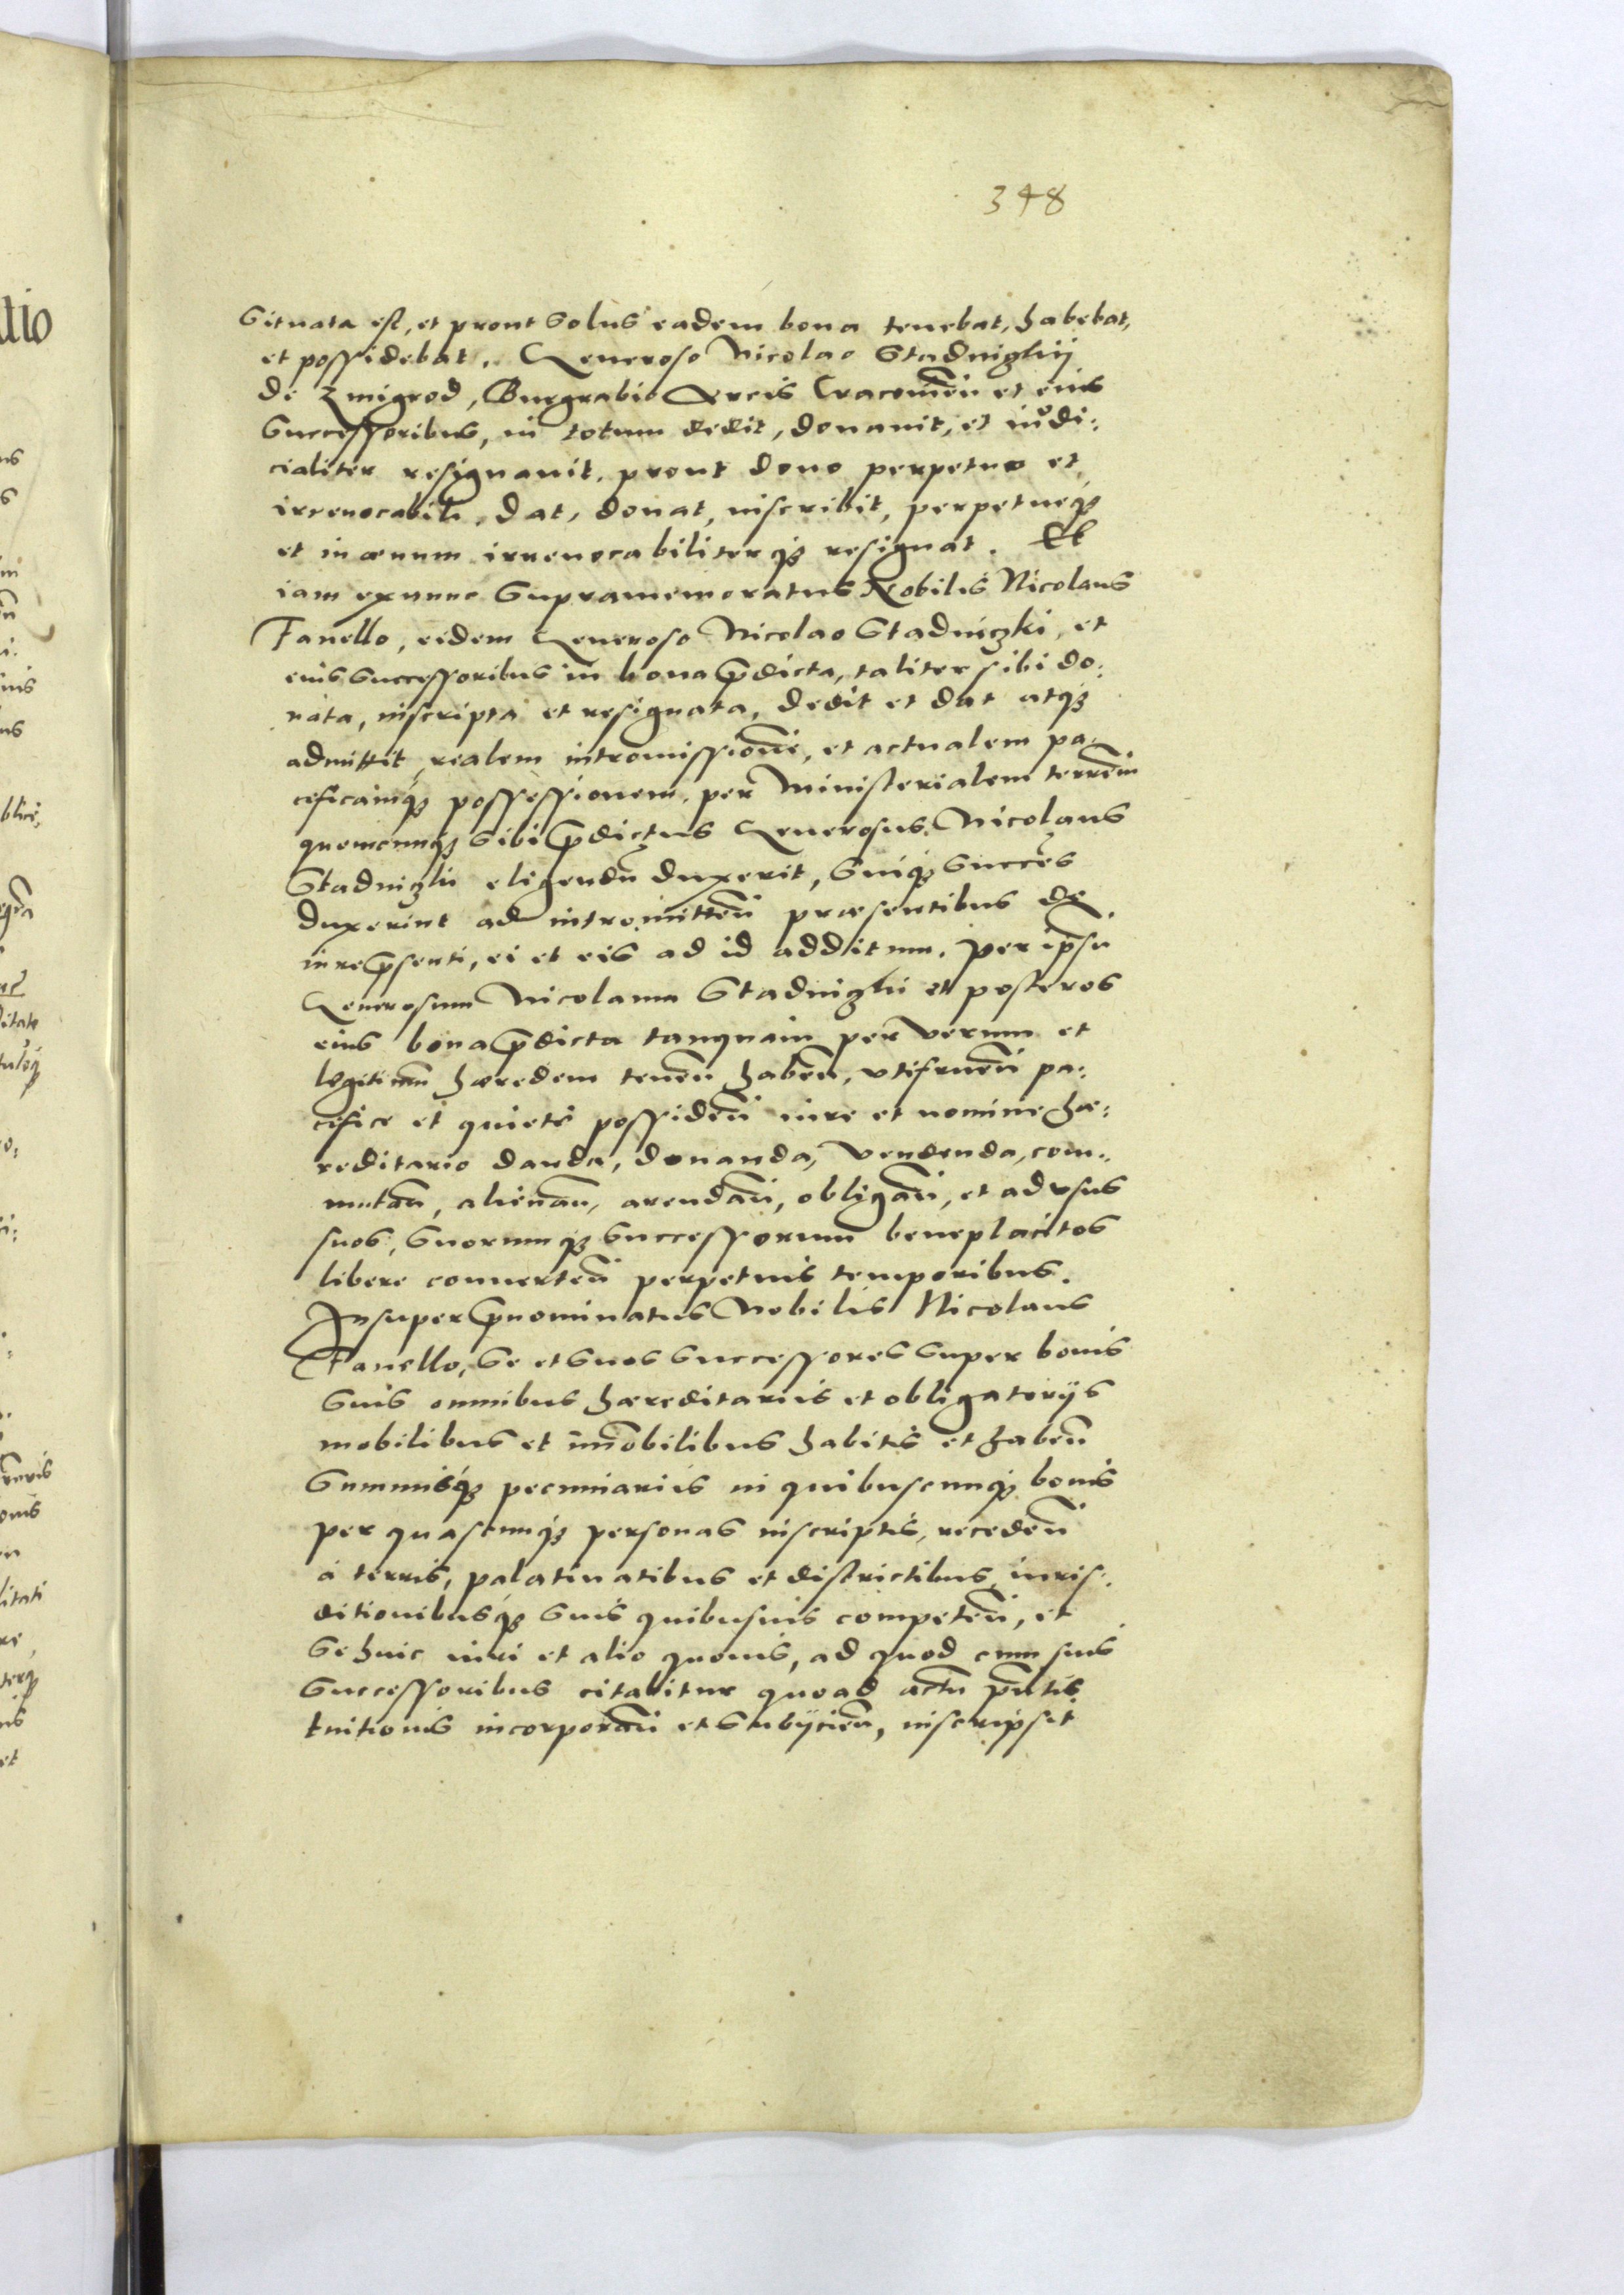 348
situata est, et prout solus eadem bona tenebat, habebat,
et possidebat. Generoso Nicolao Stadniczkij
de Zmigrod, Burgrabio Arcis Cracouien̄ et eius
Successoribus, in totum dedit, donauit, et iudi:
cialiter resignauit. prout dono perpetuo et
irreuocabili, dat, donat, inscribit, perpetueq́;
et in æuum irreuocabiliterq́; resignat. Et
iam exnunc Supramemoratus Nobilis Nicolaus
Fanello, eidem Generoso Nicolao Stadniczki, et
eius Successoribus in bona p̄dicta, taliter sibi do:
nata, inscripta et resignata, dedit et dat atq́;
admittit, realem intromissionē, et actualem pa:
cificamq́; possessionem, per Ministerialem terrēm
quemcunq́; Sibi p̄dictus Generosus Nicolaus
Stadniczki eligendū duxerit, Suiq́; Succes̄
duxerint ad intromitten̄ præsentibus de
in re p̄senti, ei et eis ad id additum. Per ipsū
Generosum Nicolaum Stadniczki et posteros
eius bona p̄dicta tanquam per verum et
legitimū hæredem tenen̄ haben̄, vtifruen̄ pa:
cifice et quietè possiden̄ iure et nomine hæ:
reditario danda, donanda, vendenda, com:
mutan̄, alienan̄, arendan̄, obligan̄, et ad vsus
suos, Suorumq́; Successorum beneplacitos
libere conuerten̄ perpetuis temporibus.
Insuper p̄nominatus Nobilis Nicolaus
Fanello, Se et Suos Successores Super bonis
Suis omnibus hæreditariis et obligatorijs
mobilibus et im̄obilibus habitis et haben̄
Summisq́; pecuniariis in quibuscunq́; bonis
per quascunq́; personas inscriptis, receden̄
à terris, palatinatibus et districtibus, iuris:
ditionibusq́; Suis quibusuis competen̄, et
Se huic iuri et alio quouis, ad quod cum suis
Successoribus citabitur quoad actū p̄ntis
tuitionis incorporan̄ et Subijcien̄, inscripsit